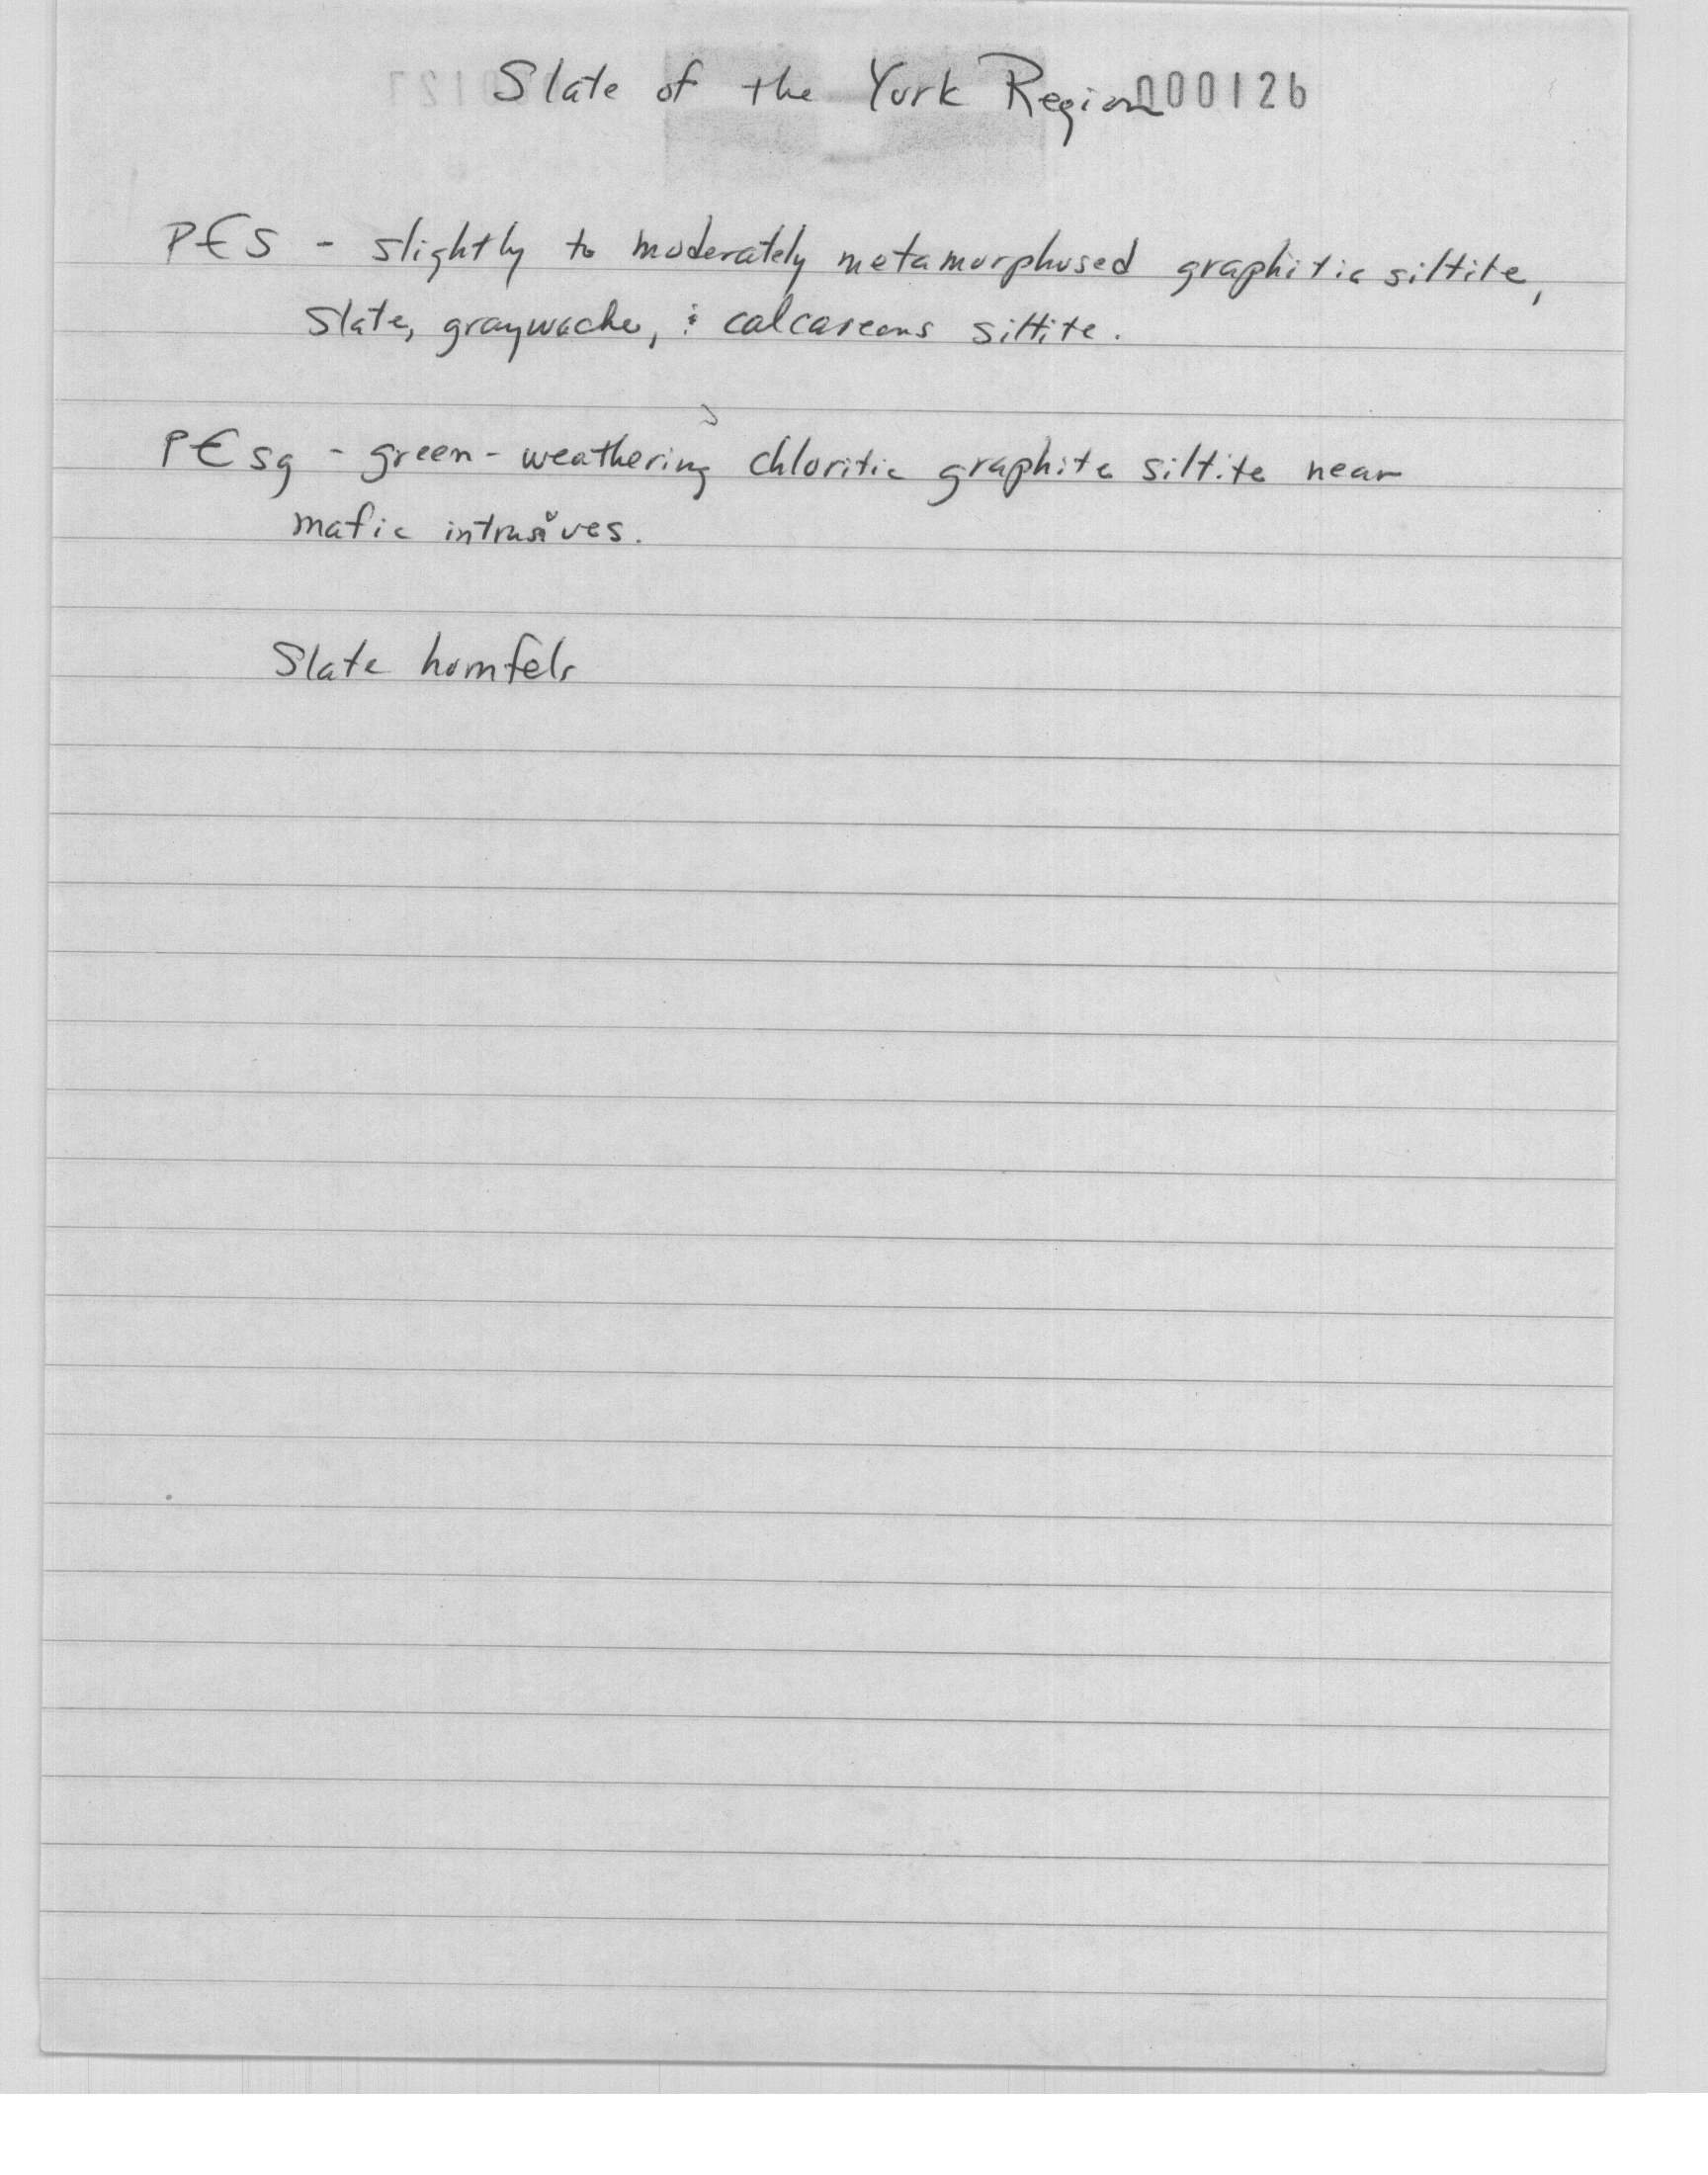 Slate of the York Region 000126
P€S - slightly to moderately metamorphosed graphitic siltite,
slate, graywacke, & calcareous siltite.
P€sg - green-weathering chloritic graphite siltite near
mafic intrusives.
Slate hornfels